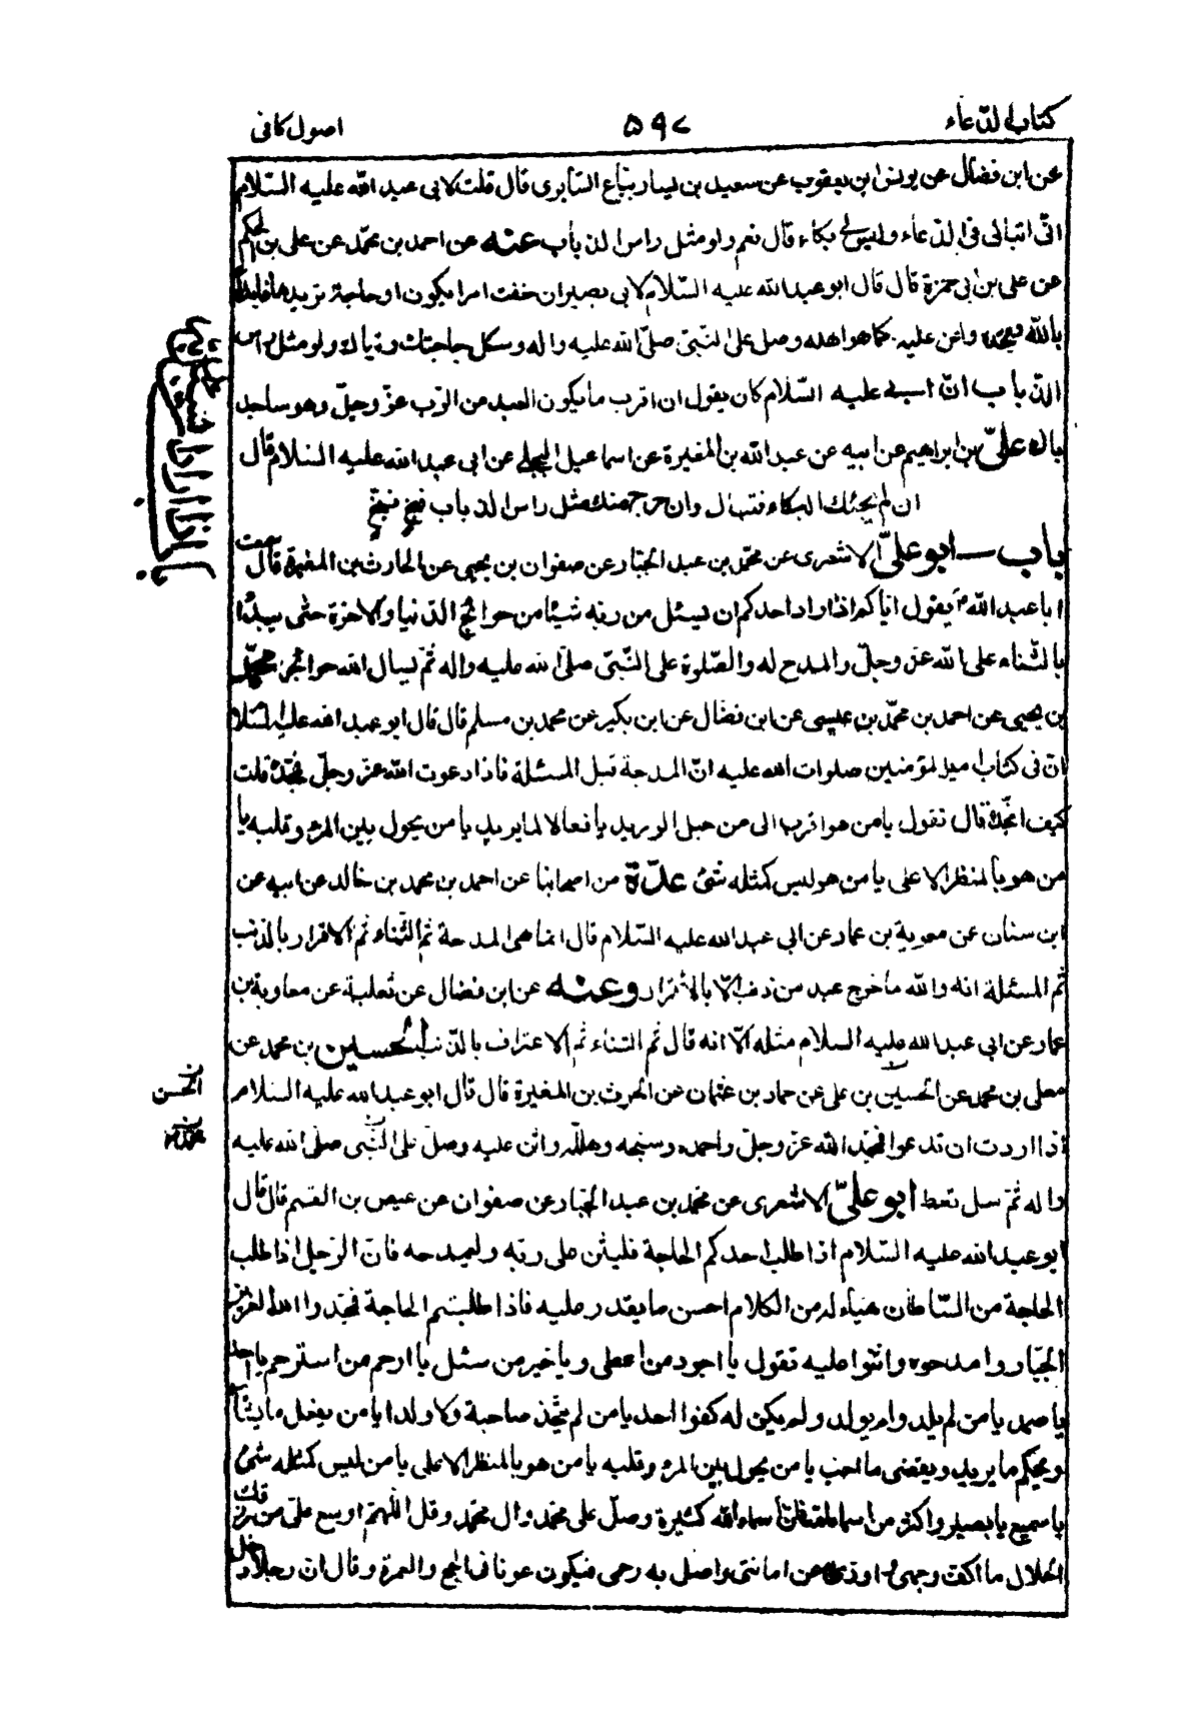 كتاب الدّعاء
٥٩٧
اصول كافى
عن ابن فضال عن يونس ابن يعقوب عن سعيد بن يسار بيّاع السّابرى قال قلت لابى عبد الله عليه السّلام
انّى اتباكى فى الدّعاء وليس لى بكاء قال نعم ولو مثل راس الذباب عنه عن احمد بن محمّد عن على بن الحكم
عن على بن ابى حمزة قال قال ابو عبد الله عليه السّلام لابى بصير ان خفت امرا يكون او حاجة تريدها فابدأ
بالله فمجّده واثن عليه كما هو اهله وصل على النّبىّ صلّى الله عليه واله وسل حاجتك وتباك ولو مثل راس
الذّباب انّ ابى عليه السّلام كان يقول ان اقرب ما يكون العبد من الرّب عزّ وجلّ وهو ساجد
باك علىّ بن ابراهيم عن ابيه عن عبد الله بن المغيرة عن اسماعيل البجلى عن ابى عبد الله عليه السّلام قال
ان لم يجئك البكاء فتباك وان خرج منك مثل راس الذباب فبخ فبخ
باب ابو علىّ الاشعرى عن محمّد بن عبد الجبّار عن صفوان بن يحيى عن الحارث بن المغيرة قال سمعت
ابا عبد الله ع يقول اياكم اذا اراد احدكم ان يسئل من ربه شيئا من حوائج الدّنيا والاخرة حتّى يبدأ
بالثّناء على الله عزّ وجلّ والمدح له والصّلوة على النّبىّ صلّى الله عليه واله ثمّ يسال الله حوائجه محمّد
بن يحيى عن احمد بن محمّد بن عيسى عن ابن فضّال عن ابن بكير عن محمد بن مسلم قال قال ابو عبد الله عليه السّلام
انّ فى كتاب امير المؤمنين صلوات الله عليه انّ المدحة قبل المسئلة فاذا دعوت الله عزّ وجلّ فمجّده قلت
كيف امجّده قال تقول يا من هو اقرب الى من حبل الوريد يا فعالا لما يريد يا من يحول بين المرء وقلبه يا
من هو بالمنظر الاعلى يا من هو ليس كمثله شئ عدّة من اصحابنا عن احمد بن محمد بن خالد عن ابيه عن
ابن سنان عن معوية بن عمار عن ابى عبد الله عليه السّلام قال انما هى المدحة ثم الثّناء ثم الاقرار بالذنب
ثم المسئلة انه والله ما خرج عبد من ذنب الّا بالاقرار وعنه عن ابن فضال عن ثعلبة عن معاوية بن
عمار عن ابى عبد الله عليه السلام مثله الّا انه قال ثم الثناء ثم الاعتراف بالذّنب الحسين بن محمد عن
معلى بن محمد عن الحسين بن على عن حماد بن عثمان عن الحرث بن المغيرة قال قال ابو عبد الله عليه السلام
الحسن
اذا اردت ان تدعو فمجّد الله عزّ وجلّ واحمده وسبحه وهلله واثن عليه وصلّ على النّبى صلّى الله عليه
واله ثمّ سل تعط ابو علىّ الاشعرى عن محمد بن عبد الجبّار عن صفوان عن عيص بن القسم قال قال
ابو عبد الله عليه السّلام اذا طلب احدكم الحاجة فليثن على ربّه وليمدحه فانّ الرّجل اذا طلب
الحاجة من السّلطان هيّاء له من الكلام احسن ما يقدر عليه فاذا طلبتم الحاجة فمجّدوا الله العزيز
الجبّار وامدحوه واثنوا عليه تقول يا اجود من اعطى ويا خير من سئل يا ارحم من استرحم يا احد
يا صمد يا من لم يلد ولم يولد ولم يكن له كفوا احد يا من لم يتّخذ صاحبة ولا ولدا يا من يفعل ما يشاء
ويحكم ما يريد ويقضى ما احب يا من يحول بين المرء وقلبه يا من هو بالمنظر الاعلى يا من ليس كمثله شئ
يا سميع يا بصير واكثر من اسماء الله فانّ اسماء الله كثيرة وصلّ على محمّد وال محمّد وقل اللهمّ اوسع علىّ من رزقك
الحلال ما اكف به وجهى واودّى به عن امانتى واصل به رحمى فيكون عونا فى الحج والعمرة وقال ان رجلا دخل